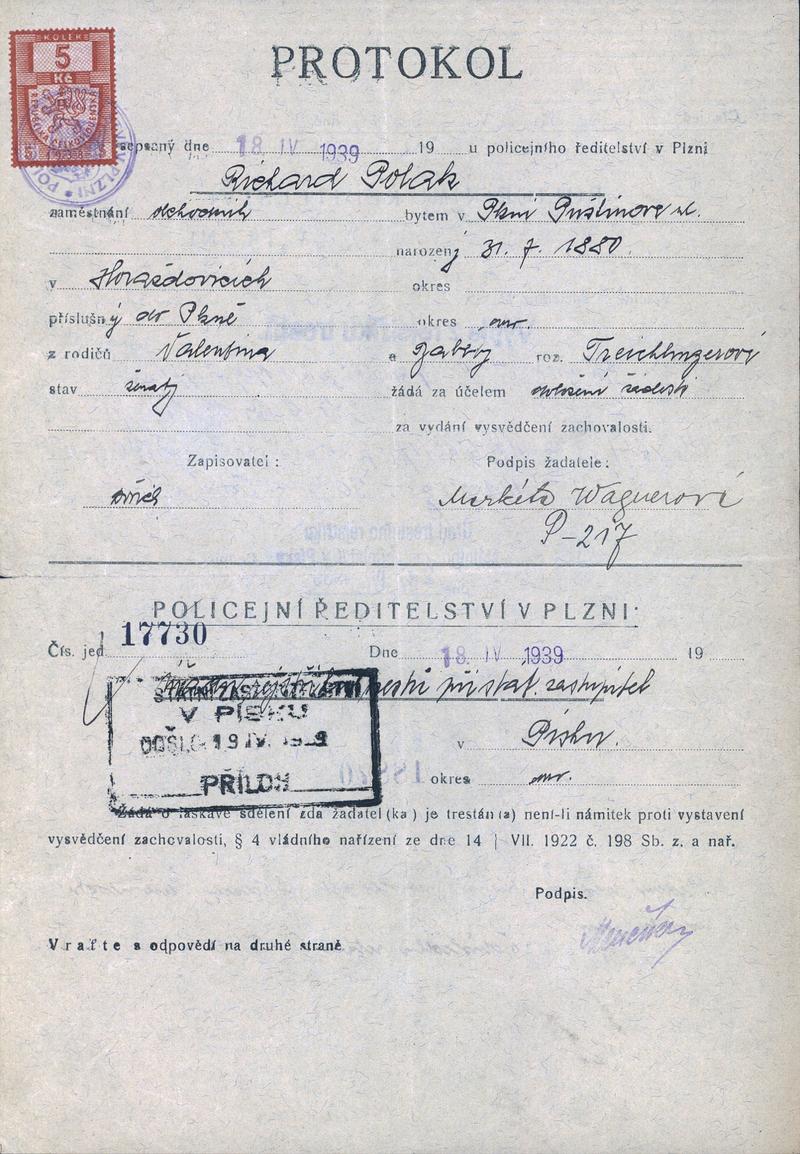 KOLEK
5
Kč
PROTOKOL
sepsaný dne 18 IV 1939 19 u policejního ředitelství v Plzni
Richard Polak
zaměstnání obchodník bytem v Plzni Puškinova ul.
narozený 31. 7. 1880.
v Horažďovicích okres
příslušný do Plzně okres
z rodičů Valentina a roz. Treichlingerové
stav ženatý žádá za účelem doložení žádosti
za vydání vysvědčení zachovalosti.
Zapisovatel : Podpis žadatele :
Markéta Wagnerová
P-217
POLICEJNÍ ŘEDITELSTVÍ V PLZNI
Čís. jed. 17730 Dne 18 IV 1939 19
zastupitel
STÁTNÍ ZASTUPITELSTVÍ
V PÍSKU
DOŠLO 19 IV. 1939
PŘÍLOH
v Písku.
okres
Žádá o laskavé sdělení zda žadatel (ka) je trestán (a) není-li námitek proti vystavení
vysvědčení zachovalosti, § 4 vládního nařízení ze dne 14 | VII. 1922 č. 198 Sb. z. a nař.
Podpis.
Vraťte s odpovědí na druhé straně